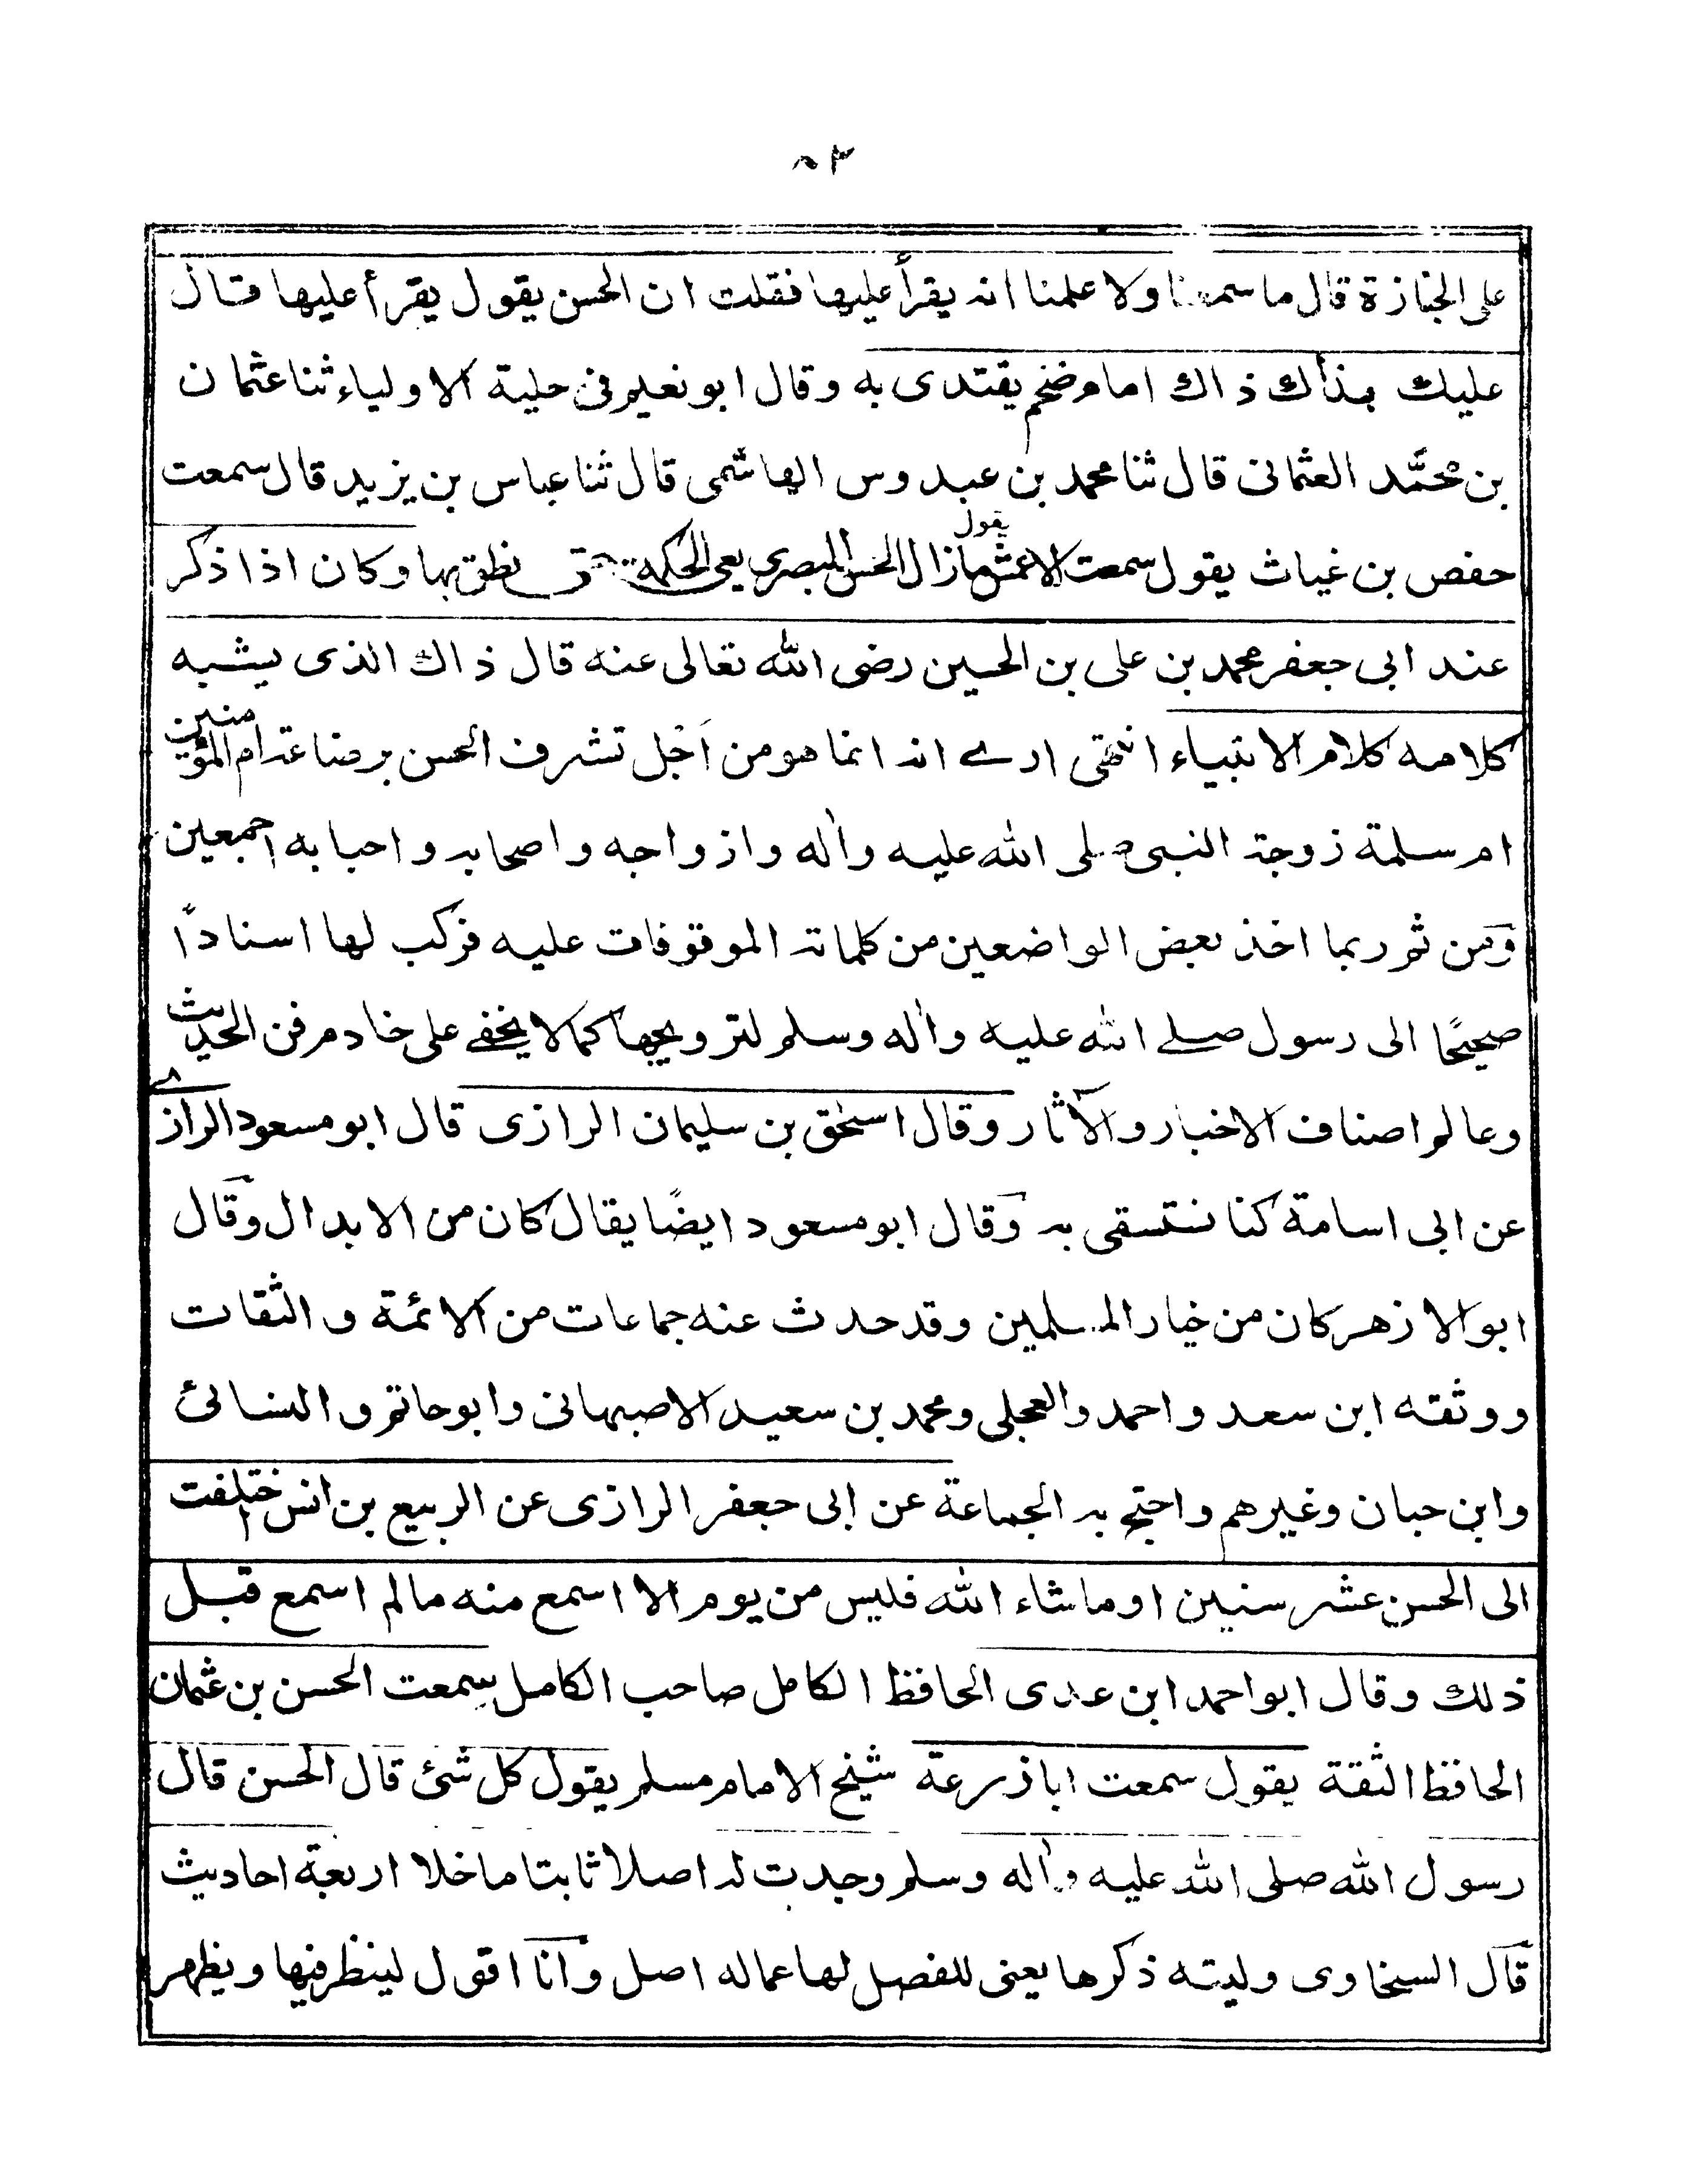 على الجنازة قال ما سمعنا ولا علمنا انه يقرأ عليها فقلت ان الحسن يقول يقرأ عليها قال
عليك بذاك ذاك امام ضخم يقتدى به وقال ابو نعيم فى حلية الاولياء ثنا عثمان
بن محمَّد العثمانى قال ثنا محمد بن عبدوس الهاشمى قال ثنا عباس بن يزيد قال سمعت
حفص بن غياث يقول سمعت الاعمش يقول مازال الحسن البصرى يعى الحكمة حتى نطق بها وكان اذا ذكر
عند ابى جعفر محمد بن على بن الحسين رضى الله تعالى عنه قال ذاك الذى يشبه
كلامه كلام الانبياء انتهى ارے انه انما هو من اَجل تشرف الحسن برضاعة ام المؤمنين
ام سلمة زوجة النبى صلى الله عليه واٰله وازواجه واصحابه واحبابه اجمعين
ومن ثم ربما اخذ بعض الواضعين من كلماته الموقوفات عليه فركب لها اسنادًا
صحيحًا الى رسول صلے الله عليه واٰله وسلم لترويجها كما لا يخفے على خادم فن الحديث
وعالم اصناف الاخبار والآثار وقال اسحٰق بن سليمان الرازى قال ابو مسعود الرازے
عن ابى اسامة كنا نستسقى به وقال ابو مسعود ايضًا يقال كان من الابدال وقال
ابو الازهر كان من خيار المسلمين وقد حدث عنه جماعات من الائمة والثقات
ووثقه ابن سعد واحمد والعجلى ومحمد بن سعيد الاصبهانى وابو حاتم والنسائى
وابن حبان وغيرهم واحتج به الجماعة عن ابى جعفر الرازى عن الربيع بن انس اختلفت
الى الحسن عشر سنين اوما شاء الله فليس من يوم الا اسمع منه مالم اسمع قبل
ذلك وقال ابو احمد ابن عدى الحافظ الكامل صاحب الكامل سمعت الحسن بن عثمان
الحافظ الثقة يقول سمعت ابا زرعة شيخ الامام مسلم يقول كل شئ قال الحسن قال
رسول الله صلى الله عليه واٰله وسلم وجدت له اصلا ثابتا ما خلا اربعة احاديث
قال السخاوى وليته ذكرها يعنى للفصل لها عما له اصل وانا اقول لينظر فيها ويظهر